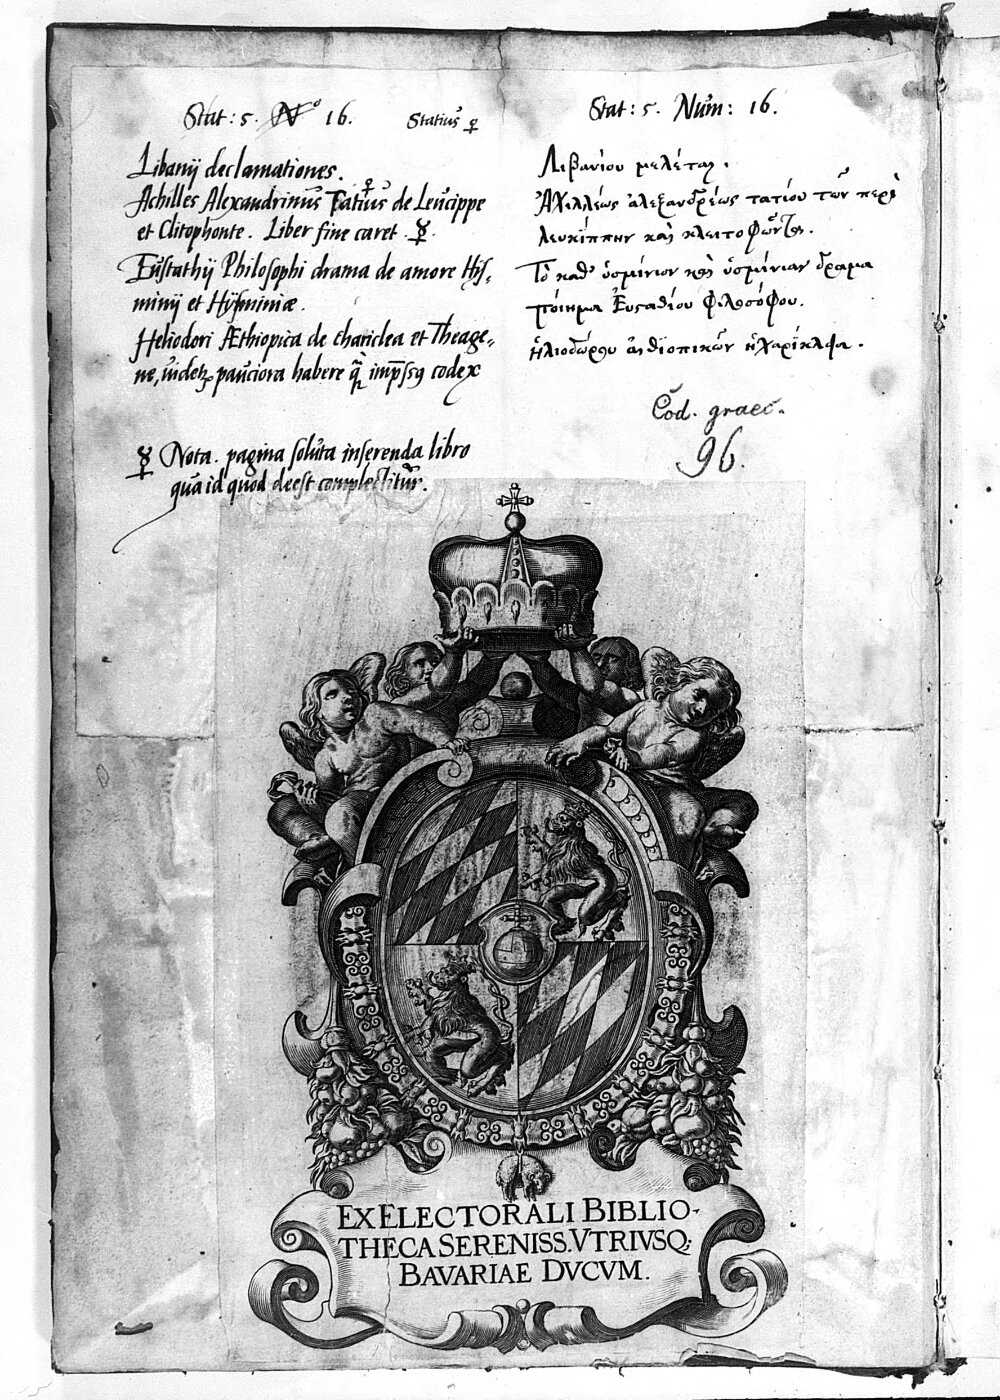 Stat: 5. N° 16.
Statius
Libanij declamationes.
Achilles Alexandrinus Tatius de Leucippe
et Clitophonte. Liber fine caret.
Eustathij Philosophi drama de amore Hys-
minij et Hysminiæ.
Heliodori Æthiopica de chariclea et Theage-
ne, videtur pauciora habere q̃ impssq codex
Nota. pagina soluta inserenda libro
qua id quod deest complectitur.
Stat: 5. Num: 16.
Λιβανίου μελέται.
Ἀχιλλέως ἀλεξανδρέως τατίου τῶν περὶ
λευκίππην καὶ κλειτοφῶντος.
Τὸ καθ' ὑσμίνιον καὶ ὑσμίνιαν δρᾶμα
ποίημα Εὐσταθίου φιλοσόφου.
ἡλιοδώρου αἰθιοπικῶν ἡ χαρίκλεια.
Cod. graec.
96.
EX ELECTORALI BIBLIO-
THECA SERENISS. VTRIVSQ;
BAVARIAE DVCVM.